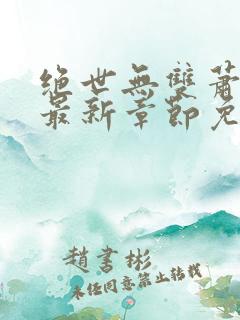 絕世無雙蕭
最新章節免
趙書彬
未經同意禁止轉載